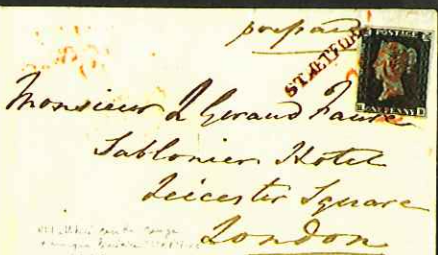 prepaid
POSTAGE
ONE PENNY
Monsieur L Geraud Faure
Sablonier Hotel
Leicester Square
London